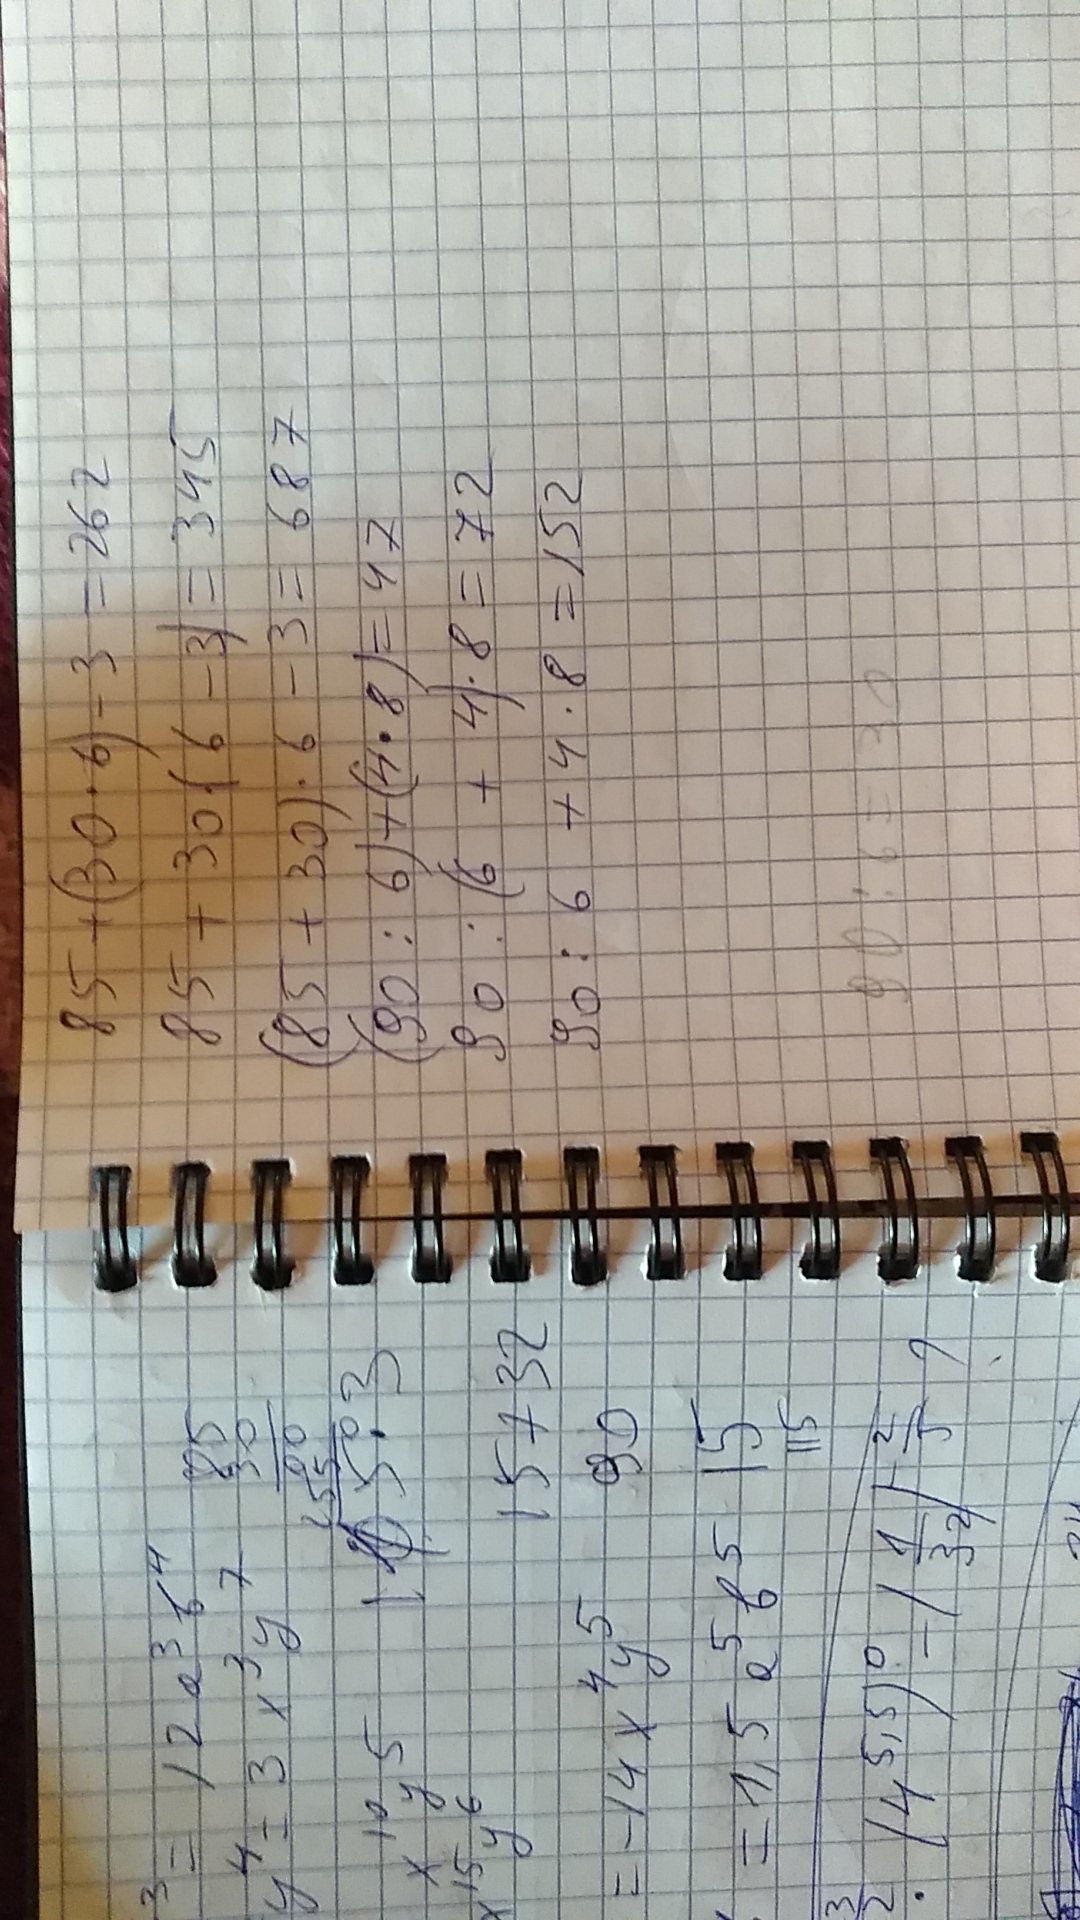 85 + (30 · 6) - 3 = 262
85 + 30 · (6 - 3) = 345
(85 + 30) · 6 - 3 = 687
(90 : 6) + (4 · 8) = 47
90 : (6 + 4) · 8 = 72
90 : 6 + 4 · 8 = 152
90 : 6 = 30
3 = 12a³b⁴
y⁴ = 3x³y⁷
x¹⁰y⁵
x¹⁵y⁶
= -14x⁴y⁵
= 1,5a⁵b⁵
85
30
90
255
15 + 32
90
15
115
3/2 · (4⁵,⁵)⁰ - (1/32)